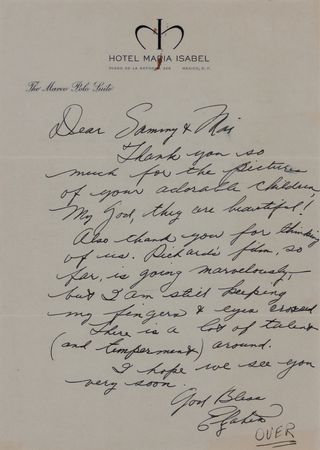 HOTEL MARIA ISABEL
PASEO DE LA REFORMA 325 MEXICO, D. F.
The Marco Polo Suite
Dear Sammy & Mai
Thank you so
much for the pictures
of your adorable children
My God, they are beautiful!
Also thank you for thinking
of us. Richard's film, so
far, is going marvelously,
but I am still keeping
my fingers & eyes crossed
There is a lot of talent
(and temperment) around.
I hope we see you
very soon.
God Bless
OVER